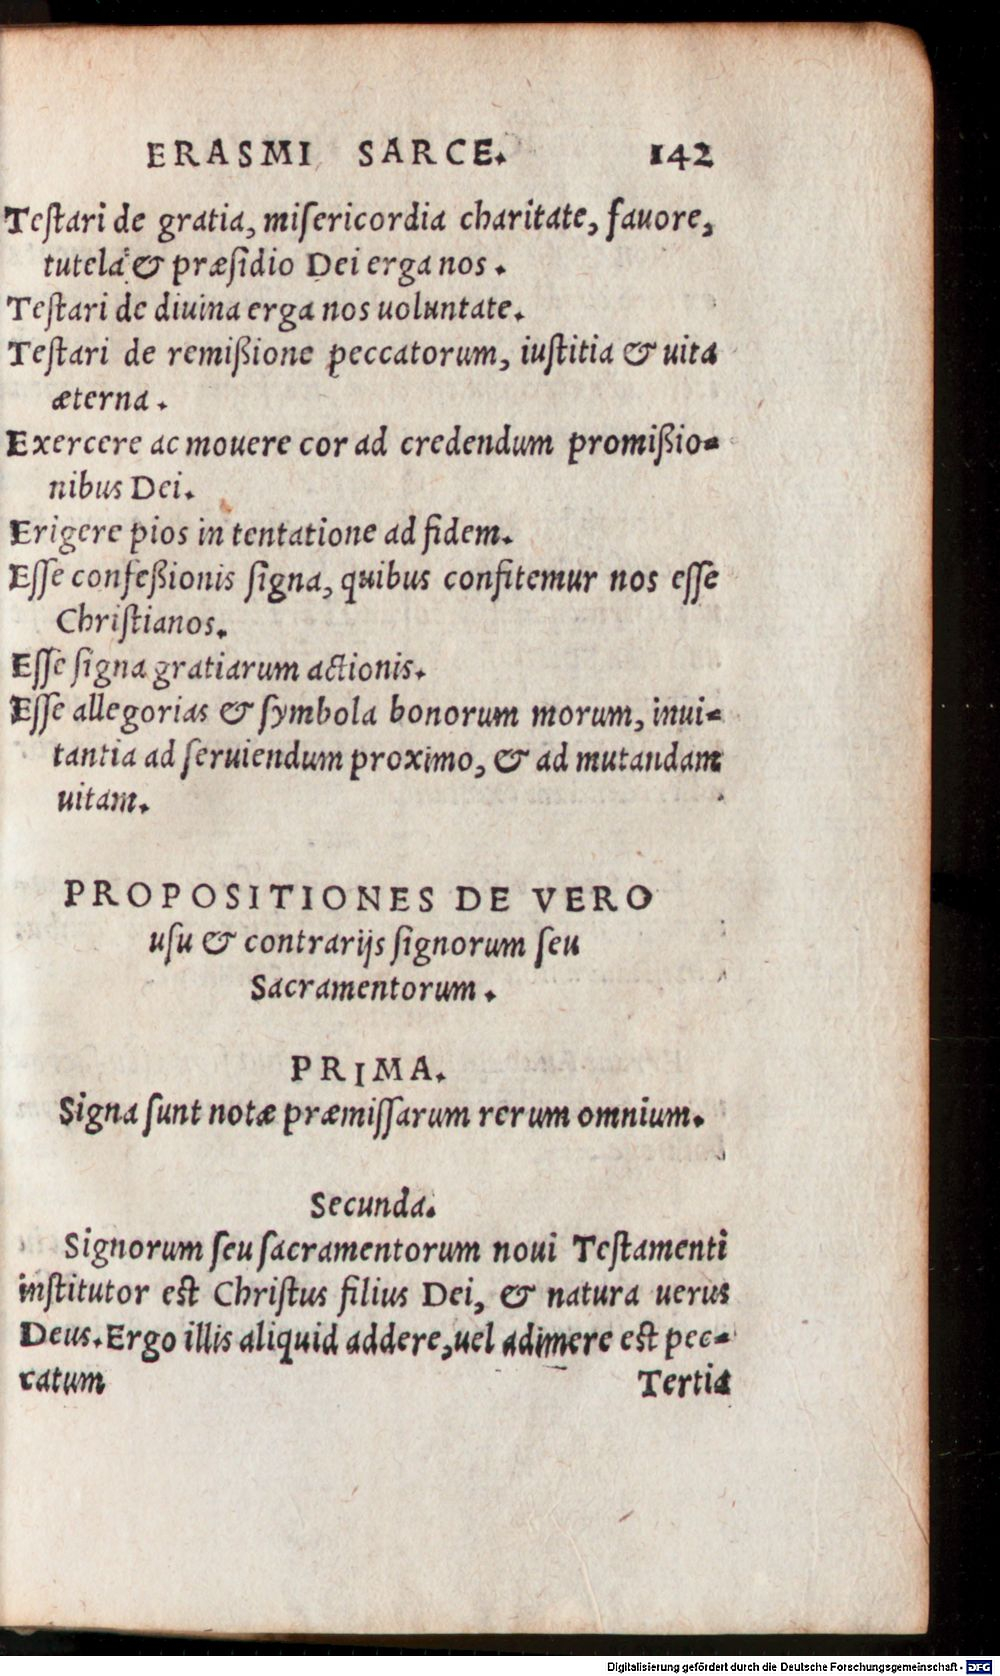 ERASMI SARCE. 142
Teſtari de gratia, miſericordia charitate, fauore,
tutela & præſidio Dei erga nos.
Teſtari de diuina erga nos uoluntate.
Teſtari de remißione peccatorum, iuſtitia & uita
æterna.
Exercere ac mouere cor ad credendum promißio-
nibus Dei.
Erigere pios in tentatione ad fidem.
Eſſe confeßionis ſigna, quibus confitemur nos eſſe
Chriſtianos.
Eſſe ſigna gratiarum actionis.
Eſſe allegorias & ſymbola bonorum morum, inui-
tantia ad ſeruiendum proximo, & ad mutandam
uitam.
PROPOSITIONES DE VERO
uſu & contrarijs ſignorum ſeu
Sacramentorum.
PRIMA.
Signa ſunt notæ præmiſſarum rerum omnium.
Secunda.
Signorum ſeu ſacramentorum noui Teſtamenti
inſtitutor eſt Chriſtus filius Dei, & natura uerus
Deus. Ergo illis aliquid addere, uel adimere eſt pec-
catum Tertia
Digitalisierung gefördert durch die Deutsche Forschungsgemeinschaft - DFG